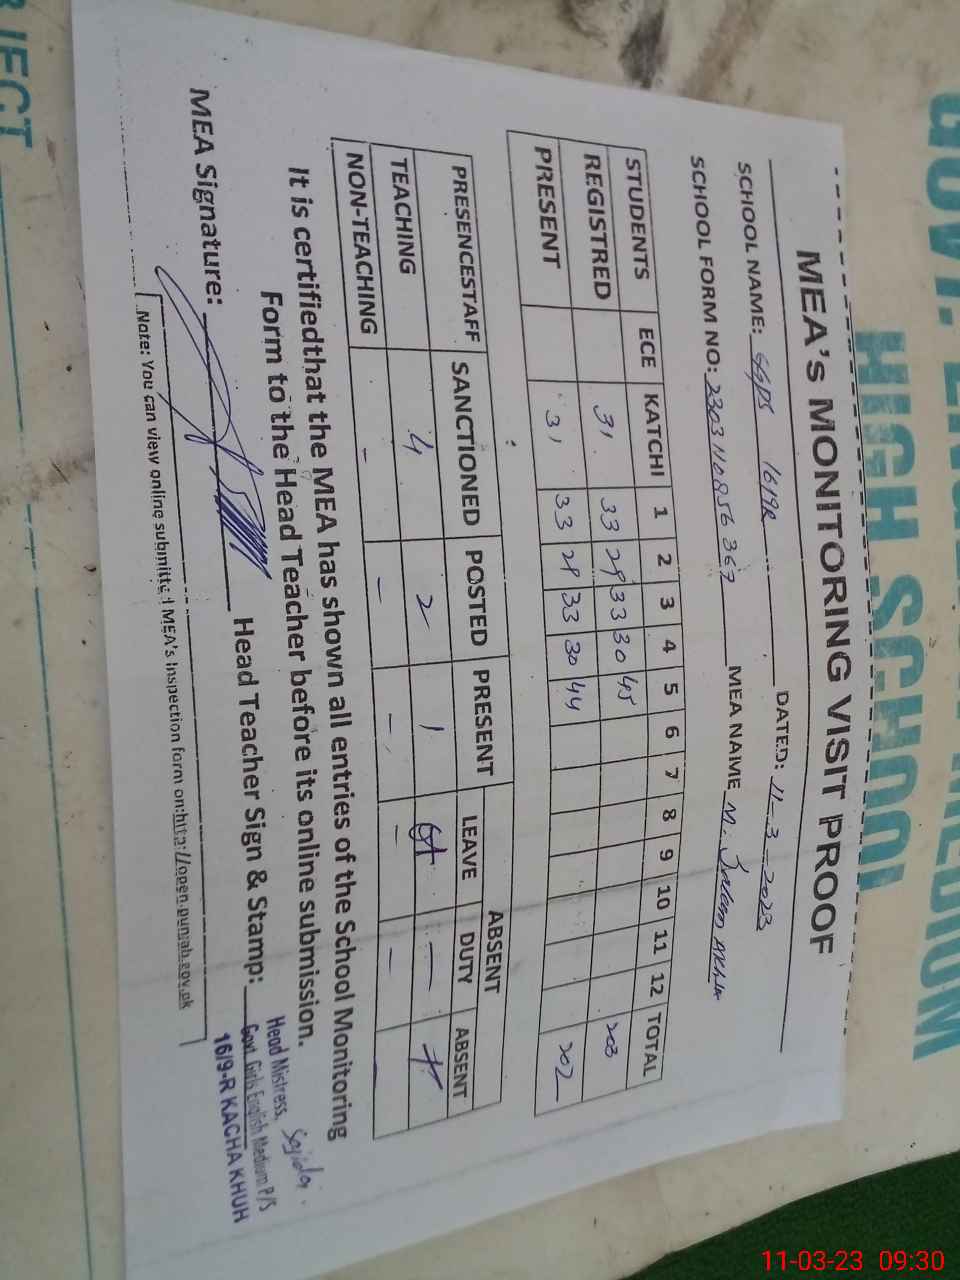 MEA's MONITORING VISIT PROOF
SCHOOL NAME: GGPS 16/9R DATED: 11-3-2023
SCHOOL FORM NO: 2303110856367 MEA NAME M.
STUDENTS ECE KATCHI 1 2 3 4 5 6 7 8 9 10 11 12 TOTAL
REGISTRED 31 33 29 33 30 45 203
PRESENT 31 33 29 33 30 44 202
PRESENCESTAFF SANCTIONED POSTED PRESENT ABSENT
LEAVE DUTY ABSENT
TEACHING 4 2 1 —
NON-TEACHING - - - - - —
It is certifiedthat the MEA has shown all entries of the School Monitoring
Form to the Head Teacher before its online submission.
MEA Signature: Head Teacher Sign & Stamp:
Sajida
Head Mistress,
Govt. Girls English Medium P/S
16/9-R KACHA KHUH
Note: You can view online submitted MEA's Inspection form on:http://open.punjab.gov.pk
GOVT. MEDIUM
HIGH SCHOOL
JECT
11-03-23 09:30